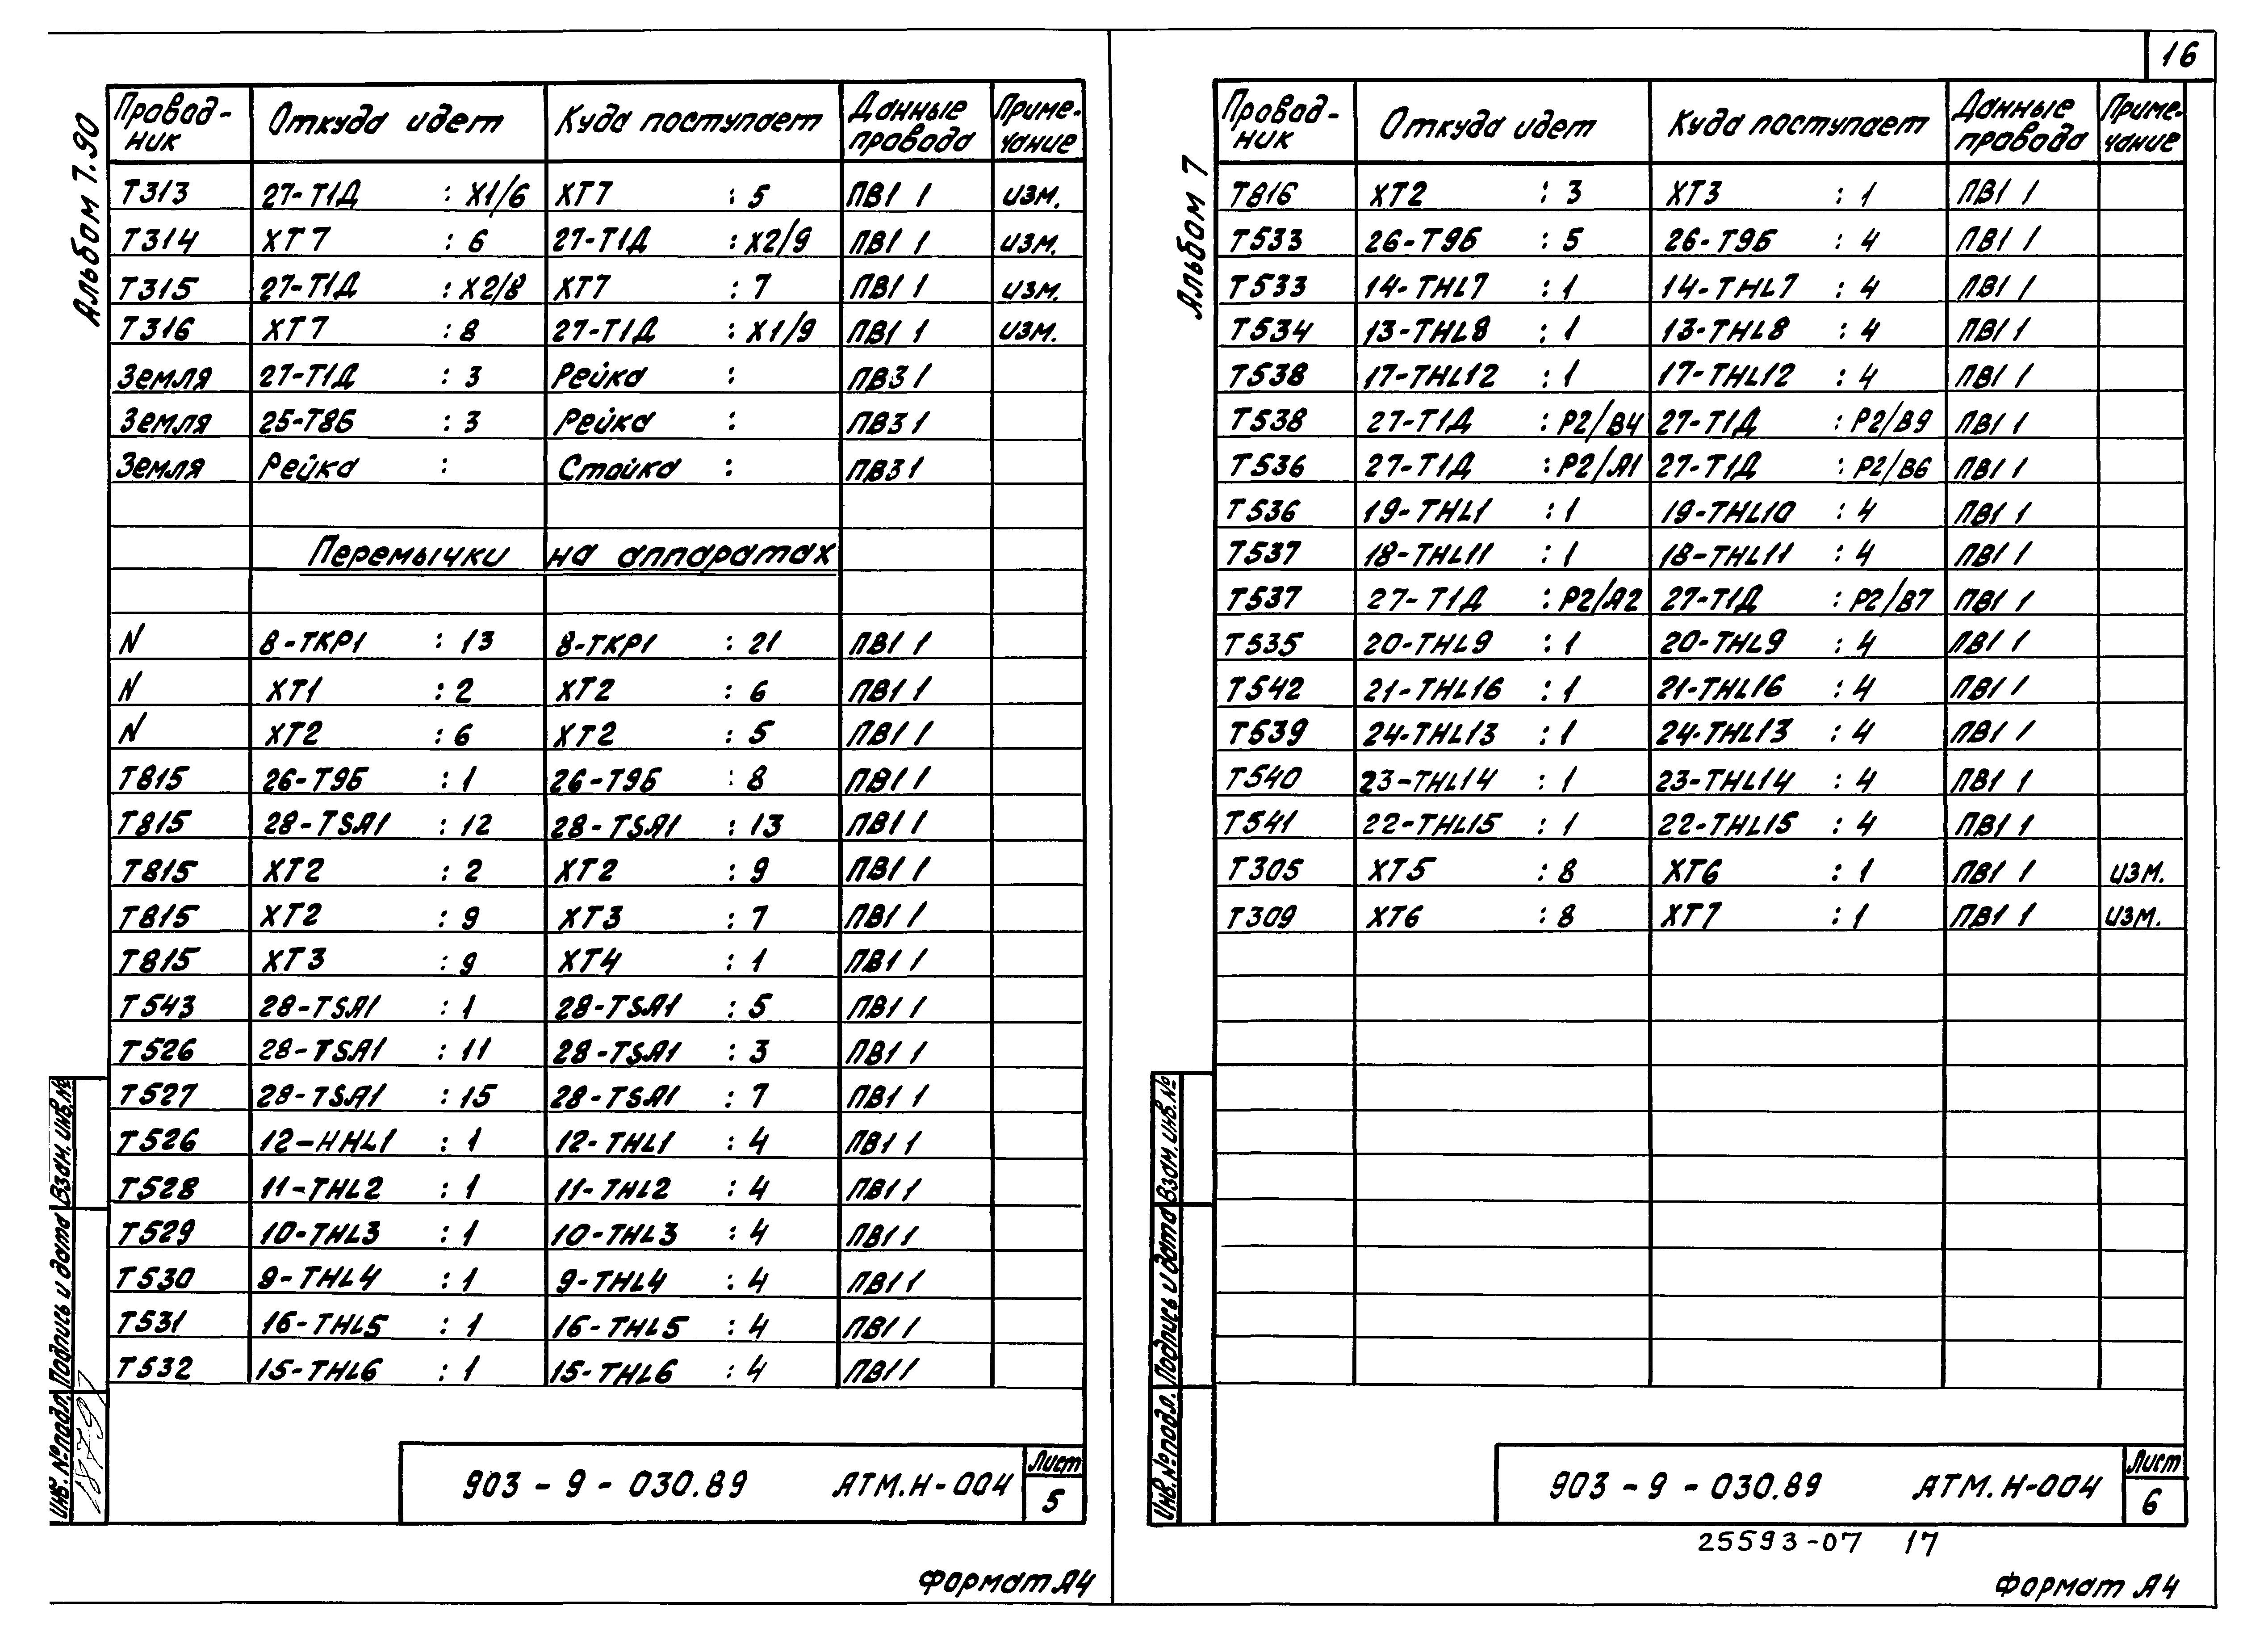 Альбом 7.90
Провод-ник Откуда идет Куда поступает Данные провода Приме-чание
Т313 27-Т1Д : Х1/6 ХТ7 : 5 ПВ1 1 изм.
Т314 ХТ7 : 6 27-Т1Д : Х2/9 ПВ1 1 изм.
Т315 27-Т1Д : Х2/8 ХТ7 : 7 ПВ1 1 изм.
Т316 ХТ7 : 8 27-Т1Д : Х1/9 ПВ1 1 изм.
Земля 27-Т1Д : 3 Рейка : ПВ3 1
Земля 25-Т8Б : 3 Рейка : ПВ3 1
Земля Рейка : Стойка : ПВ3 1
Перемычки на аппаратах
N 8-ТКР1 : 13 8-ТКР1 : 21 ПВ1 1
N ХТ1 : 2 ХТ2 : 6 ПВ1 1
N ХТ2 : 6 ХТ2 : 5 ПВ1 1
Т815 26-Т9Б : 1 26-Т9Б : 8 ПВ1 1
Т815 28-TSA1 : 12 28-TSA1 : 13 ПВ1 1
Т815 ХТ2 : 2 ХТ2 : 9 ПВ1 1
Т815 ХТ2 : 9 ХТ3 : 7 ПВ1 1
Т815 ХТ3 : 9 ХТ4 : 1 ПВ1 1
Т543 28-TSA1 : 1 28-TSA1 : 5 ПВ1 1
Т526 28-TSA1 : 11 28-TSA1 : 3 ПВ1 1
Т527 28-TSA1 : 15 28-TSA1 : 7 ПВ1 1
Т526 12-HHL1 : 1 12-THL1 : 4 ПВ1 1
Т528 11-THL2 : 1 11-THL2 : 4 ПВ1 1
Т529 10-THL3 : 1 10-THL3 : 4 ПВ1 1
Т530 9-THL4 : 1 9-THL4 : 4 ПВ1 1
Т531 16-THL5 : 1 16-THL5 : 4 ПВ1 1
Т532 15-THL6 : 1 15-THL6 : 4 ПВ1 1
Инв. № подл. Подпись и дата Взам. инв. №
903-9-030.89 АТМ.Н-004 Лист 5
Формат А4
16
Альбом 7
Провод-ник Откуда идет Куда поступает Данные провода Приме-чание
Т816 ХТ2 : 3 ХТ3 : 1 ПВ1 1
Т533 26-Т9Б : 5 26-Т9Б : 4 ПВ1 1
Т533 14-THL7 : 1 14-THL7 : 4 ПВ1 1
Т534 13-THL8 : 1 13-THL8 : 4 ПВ1 1
Т538 17-THL12 : 1 17-THL12 : 4 ПВ1 1
Т538 27-Т1Д : Р2/В4 27-Т1Д : Р2/В9 ПВ1 1
Т536 27-Т1Д : Р2/А1 27-Т1Д : Р2/В6 ПВ1 1
Т536 19-THL1 : 1 19-THL10 : 4 ПВ1 1
Т537 18-THL11 : 1 18-THL11 : 4 ПВ1 1
Т537 27-Т1Д : Р2/А2 27-Т1Д : Р2/В7 ПВ1 1
Т535 20-THL9 : 1 20-THL9 : 4 ПВ1 1
Т542 21-THL16 : 1 21-THL16 : 4 ПВ1 1
Т539 24-THL13 : 1 24-THL13 : 4 ПВ1 1
Т540 23-THL14 : 1 23-THL14 : 4 ПВ1 1
Т541 22-THL15 : 1 22-THL15 : 4 ПВ1 1
Т305 ХТ5 : 8 ХТ6 : 1 ПВ1 1 изм.
Т309 ХТ6 : 8 ХТ7 : 1 ПВ1 1 изм.
Инв. № подл. Подпись и дата Взам. инв. №
903-9-030.89 АТМ.Н-004 Лист 6
25593-07 17
Формат А4